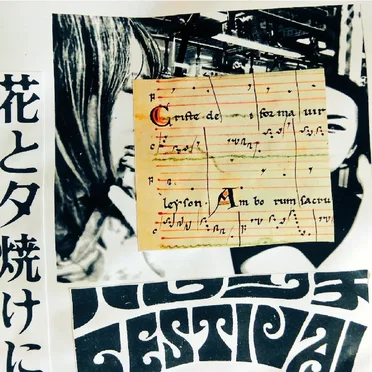 花と夕焼けに
Criste de forma vir
ley son Am bo rum sacru
FESTIVAL